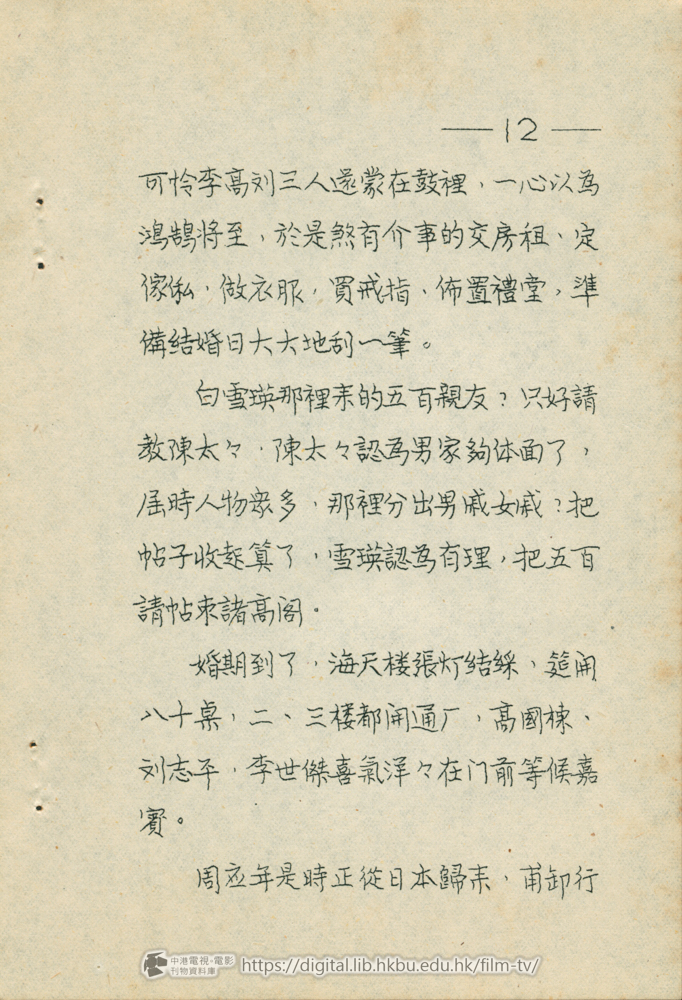 —12—
可怜李高刘三人還蒙在鼓裡，一心以為
鴻鵠將至，於是煞有介事的交房租、定
傢俬，做衣服，買戒指、佈置禮堂，準
備結婚日大大地刮一筆。
白雪瑛那裡来的五百親友？只好請
教陳太々，陳太々認為男家夠体面了，
屆時人物衆多，那裡分出男戚女戚？把
帖子收起算了，雪瑛認為有理，把五百
請帖束諸高阁。
婚期到了，海天楼張灯结綵、筵開
八十桌，二、三楼都開通厂，高國棟、
刘志平，李世傑喜氣洋々在门前等候嘉
賓。
周应年是時正從日本歸来，甫卸行
中港電視·電影
刊物資料庫
https://digital.lib.hkbu.edu.hk/film-tv/